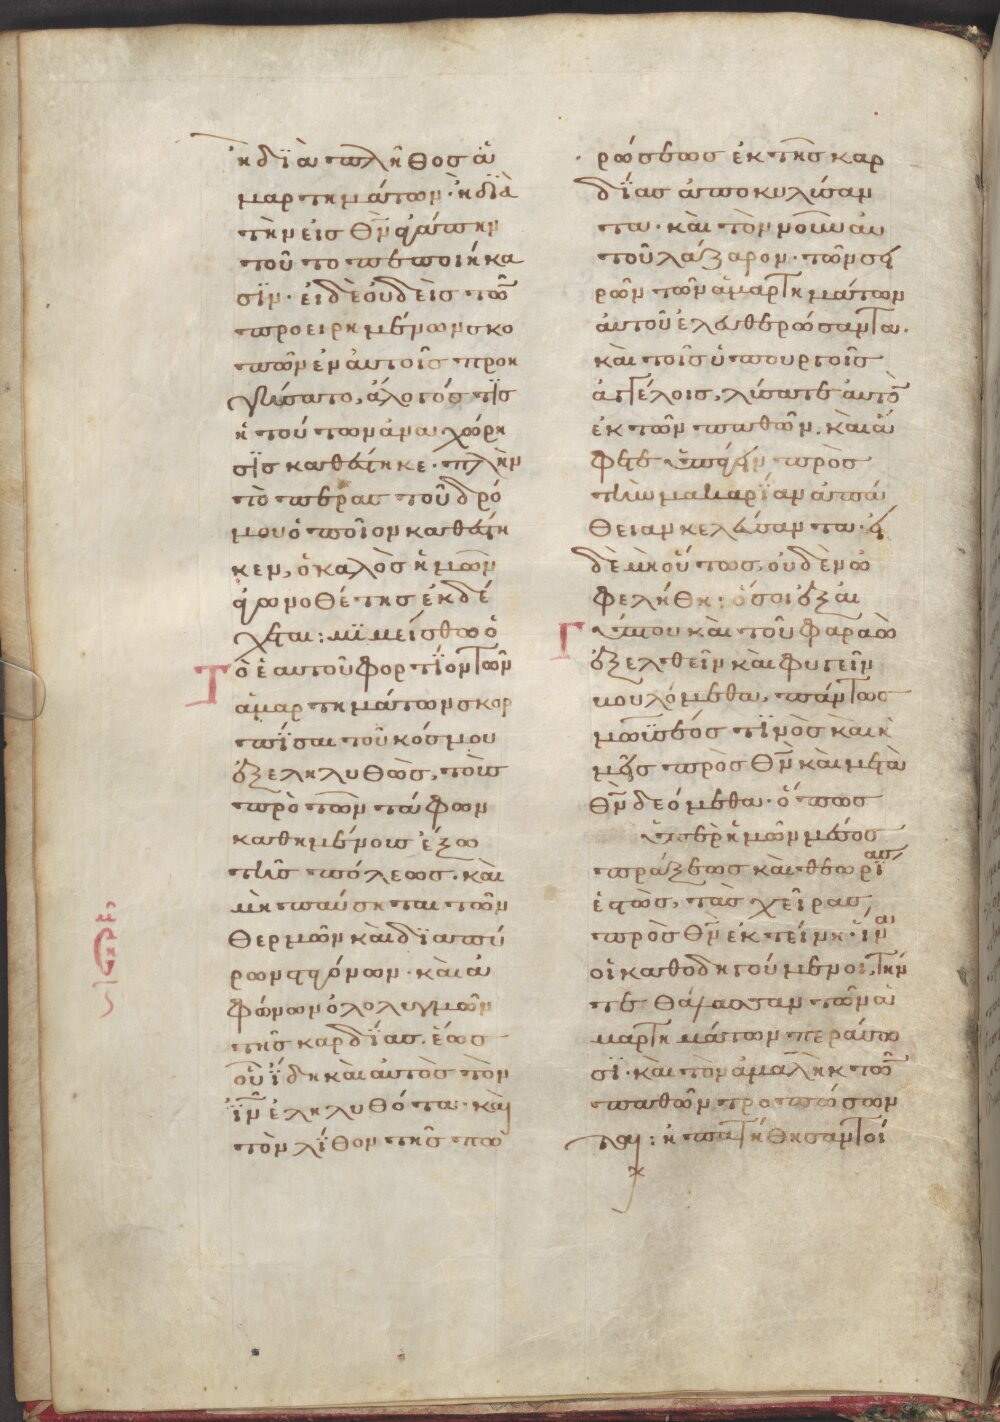 ἢ δϊὰ πλῆθος ἁ
μαρτημάτων· ἢ δϊὰ
τὴν εἰς θν̅ ἀγάπην
τοῦτο πεποιήκα
σϊν· εἰ δὲ οὐδεὶς τῶν
προειρημένων σκο
πῶν ἐν αὐτοῖς προη
γήσατο, ἄλογός τϊς
ἡ τούτων ἀναχώρη
σϊς καθέστηκε· πλὴν
τὸ πέρας τοῦ δρό
μου ὁποῖον καθέστη
κεν, ὁ καλὸς ἡμῶν
ἀγωνοθέτης ἐκδέ
χεται: μϊμείσθω ὁ
Τὸ ἑαυτοῦ φορτίον τῶν
ἁμαρτημάτων σκορ
πϊσαι τοῦ κόσμου
ἐξεληλυθὼς, τοὺς
πρὸ τῶν τάφων
καθημένους ἔξω
τῆς πόλεως· καὶ
μὴ παύσηται τῶν
θερμῶν καὶ δϊαπύ
ρων σταγόνων· καὶ ἀ
φώνων ὀλολυγμῶν
τῆς καρδΐας, ἕως
οὗ ἴδη καὶ αὐτὸς τὸν
ἰν̅ ἐληλυθότα· καὶ
τὸν λίθον τῆς πω
ρώσεως ἐκ τῆς καρ
δΐας ἀποκυλίσαν
τα· καὶ τὸν νοῦν αυ
τοῦ λάζαρον· τῶν σει
ρῶν τῶν ἁμαρτημάτων
αὐτοῦ ἐλευθερώσαντα·
καὶ τοῖς ὑπουργοῖς
ἀγγέλοις, λύσατε αὐτὸν
ἐκ τῶν παθῶν· καὶ ἄ
φετε ὑπάγειν πρὸς
τὴν μακαρΐαν ἀπά
θειαν κελεύσαντα· εἰ
δὲ μὴ οὕτως, οὐδὲν ὠ
φελήθη: ὅσοι ἐξ αἰ
Γύπτου καὶ τοῦ φαραὼ
ἐξελθεῖν καὶ φυγεῖν
βουλόμεθα, πάντως
μωϋσέος τϊνὸς καὶ ἡ
μεῖς πρὸς θν̅ καὶ μετὰ
θν̅ δεόμεθα· ὅπως
ὑπὲρ ἡμῶν μέσος
πράξεως καὶ θεωρίας
ἑστὼς, τὰς χεῖρας
πρὸς θν̅ ἐκτείνη· ἵνα
οἱ καθοδηγούμενοι, τήν
τε θάλασσαν τῶν ἁ
μαρτημάτων περάσω
σϊ· καὶ τὸν ἀμαλὴκ τῶν
παθῶν τροπώσων
ται: ἠπατήθησαν τοί